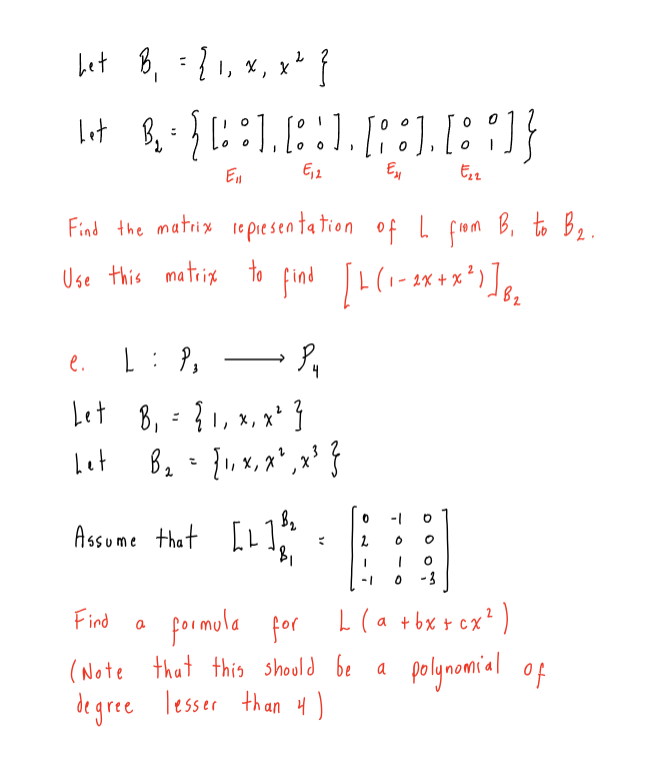 Let B₁ = { 1, x, x² }
Let B₂ = { [1 0; 0 0], [0 1; 0 0], [0 0; 1 0], [0 0; 0 1] }
E₁₁ E₁₂ E₂₁ E₂₂
Find the matrix representation of L from B₁ to B₂.
Use this matrix to find [L(1-2x+x²)]_B₂
e. L : P₃ ⟶ P₄
Let B₁ = { 1, x, x² }
Let B₂ = { 1, x, x², x³ }
Assume that [L]_B₁^B₂ = [0 -1 0; 2 0 0; 1 1 0; -1 0 -3]
Find a formula for L(a + bx + cx²)
(Note that this should be a polynomial of
degree lesser than 4)